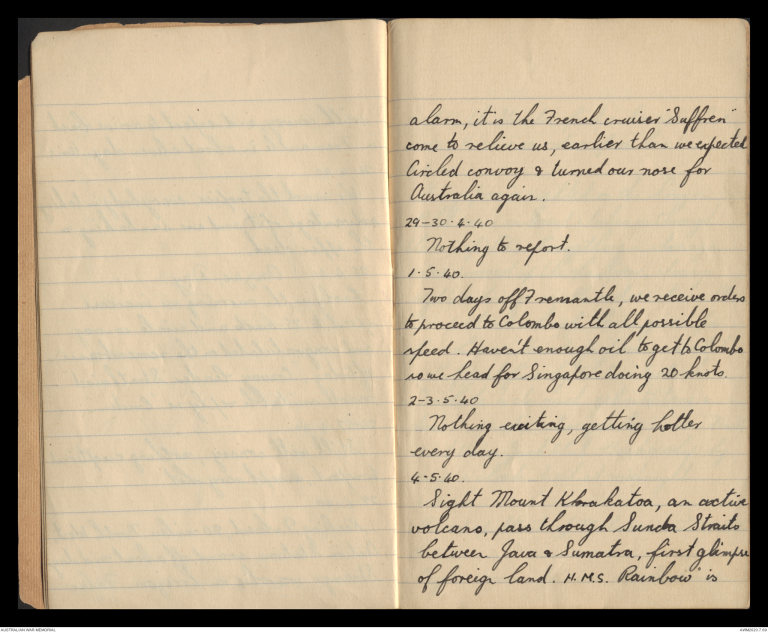 alarm, it is the French cruiser "Suffren"
come to relieve us, earlier than we expected
Circled convoy & turned our nose for
Australia again.
29-30·4·40
Nothing to report.
1·5·40.
Two days off Fremantle, we receive orders
to proceed to Colombo with all possible
speed. Haven't enough oil to get to Colombo
so we head for Singapore doing 20 knots.
2-3·5·40
Nothing exciting, getting hotter
every day.
4-5·40.
Sight Mount Khrakatoa, an active
volcano, pass through Sunda Straits
between Java & Sumatra, first glimpse
of foreign land. H.M.S. Rainbow is
AUSTRALIAN WAR MEMORIAL